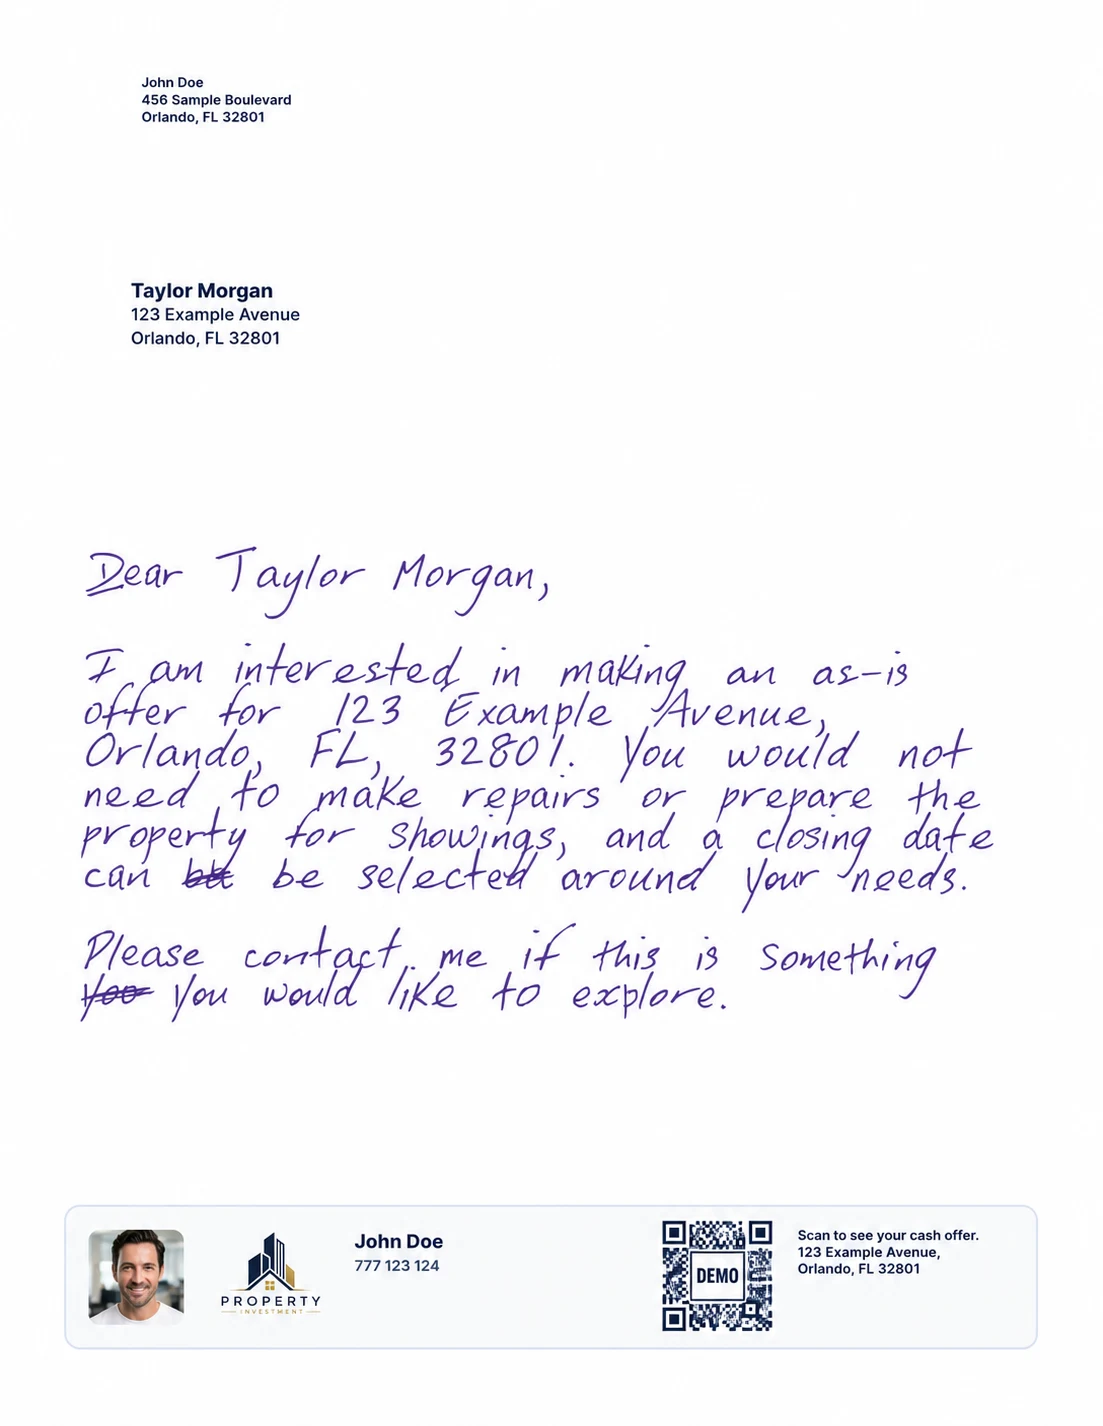 John Doe
456 Sample Boulevard
Orlando, FL 32801
Taylor Morgan
123 Example Avenue
Orlando, FL 32801
Dear Taylor Morgan,
I am interested in making an as-is
offer for 123 Example Avenue,
Orlando, FL, 32801. You would not
need to make repairs or prepare the
property for showings, and a closing date
can be be selected around your needs.
Please contact me if this is something
yoo you would like to explore.
PROPERTY
INVESTMENT
John Doe
777 123 124
DEMO
Scan to see your cash offer.
123 Example Avenue,
Orlando, FL 32801